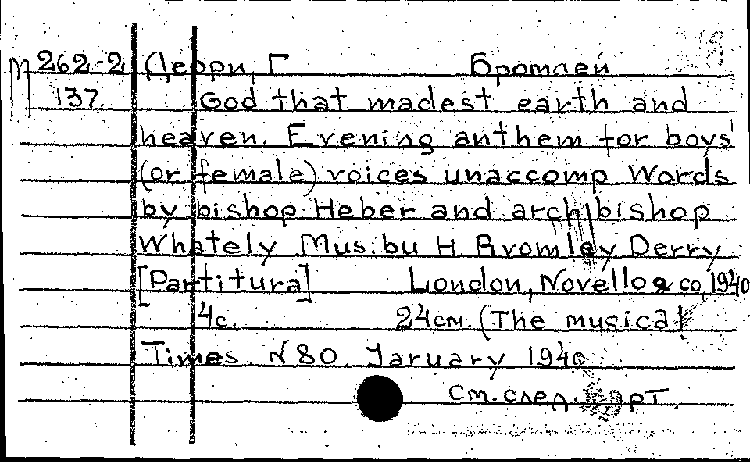 М 262-2 Дерри, Г Бромлей
137 God that madest earth and
heaven. Evening anthem for boys'
(or female) voices unaccomp Words
by bishop Heber and archbishop
Whately Mus. bu H Bromley Derry
[Partitura] London, Novello & co, 1940
4с. 24см. (The musical
Times N 80 January 1940
См. след. карт.